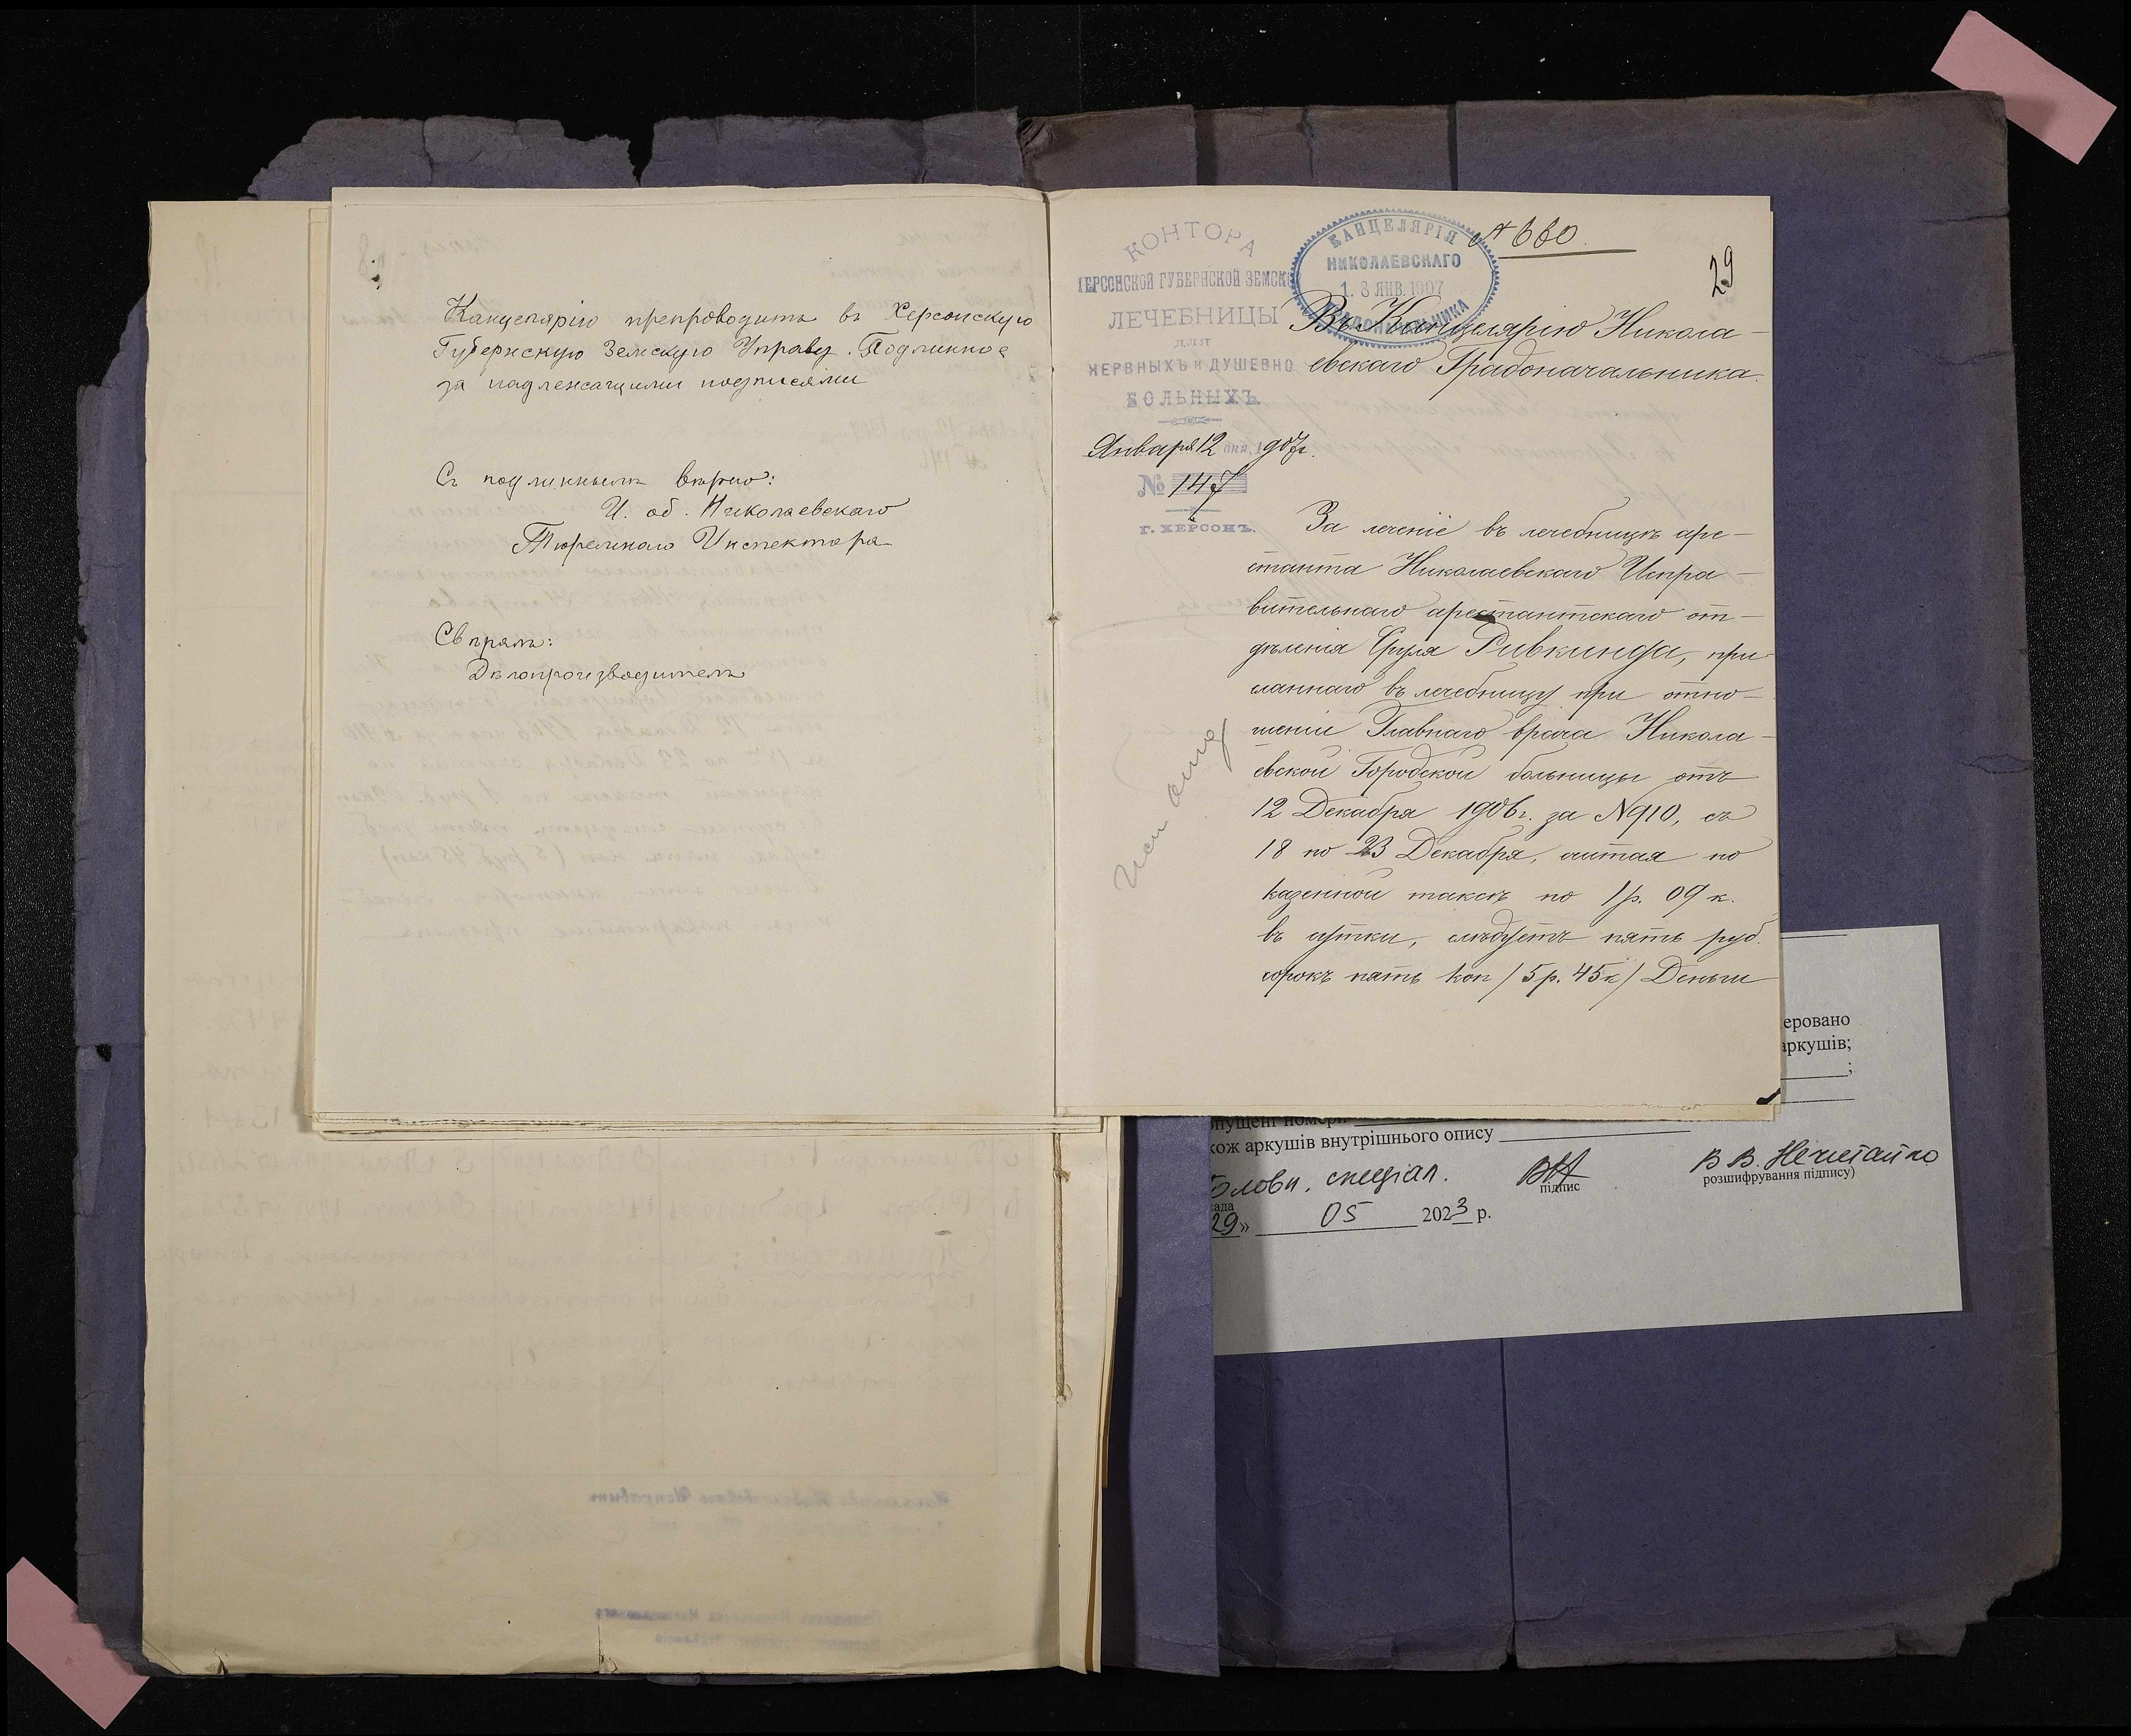 Канцелярію препроводить въ Херсонскую
Губернскую Земскую Управу. Подлинное
за надлежащими подписями
Съ подлиннымъ вѣрно:
И. об. Николаевскаго
Тюремнаго Инспектора
Свѣрялъ:
Дѣлопроизводитель
КОНТОРА
ХЕРСОНСКОЙ ГУБЕРНСКОЙ ЗЕМСК
ЛЕЧЕБНИЦЫ
ДЛЯ
НЕРВНЫХЪ и ДУШЕВНО
БОЛЬНЫХЪ.
Января 12 дня, 1907г.
№ 147
г. ХЕРСОНЪ.
КАНЦЕЛЯРІЯ
НИКОЛАЕВСКАГО
13 ЯНВ. 1907
ГРАДОНАЧАЛЬНИКА
№ 660.
29
Въ Канцелярію Никола-
евскаго Градоначальника.
За леченіе въ лечебницѣ аре-
станта Николаевскаго Испра-
вительнаго арестантскаго от-
дѣленія Сруля Ривкинда, при
сланнаго въ лечебницу при отно-
шеніи Главнаго врача Никола-
евской Городской больницы отъ
12 Декабря 1906г. за №910, съ
18 по 23 Декабря, считая по
казенной таксѣ по 1 р. 09 к.
въ сутки, слѣдуетъ пять руб.
сорокъ пять коп /5 р. 45 к/ Деньги
еровано
аркушів;
;
опущені номери
кож аркушів внутрішнього опису
Головн. спеціал.
підпис
В В. Нечитайло
розшифрування підпису)
ада
29» 05 2023 р.